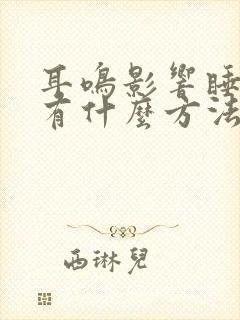 耳鳴影響睡
有什麼方法
西琳兒